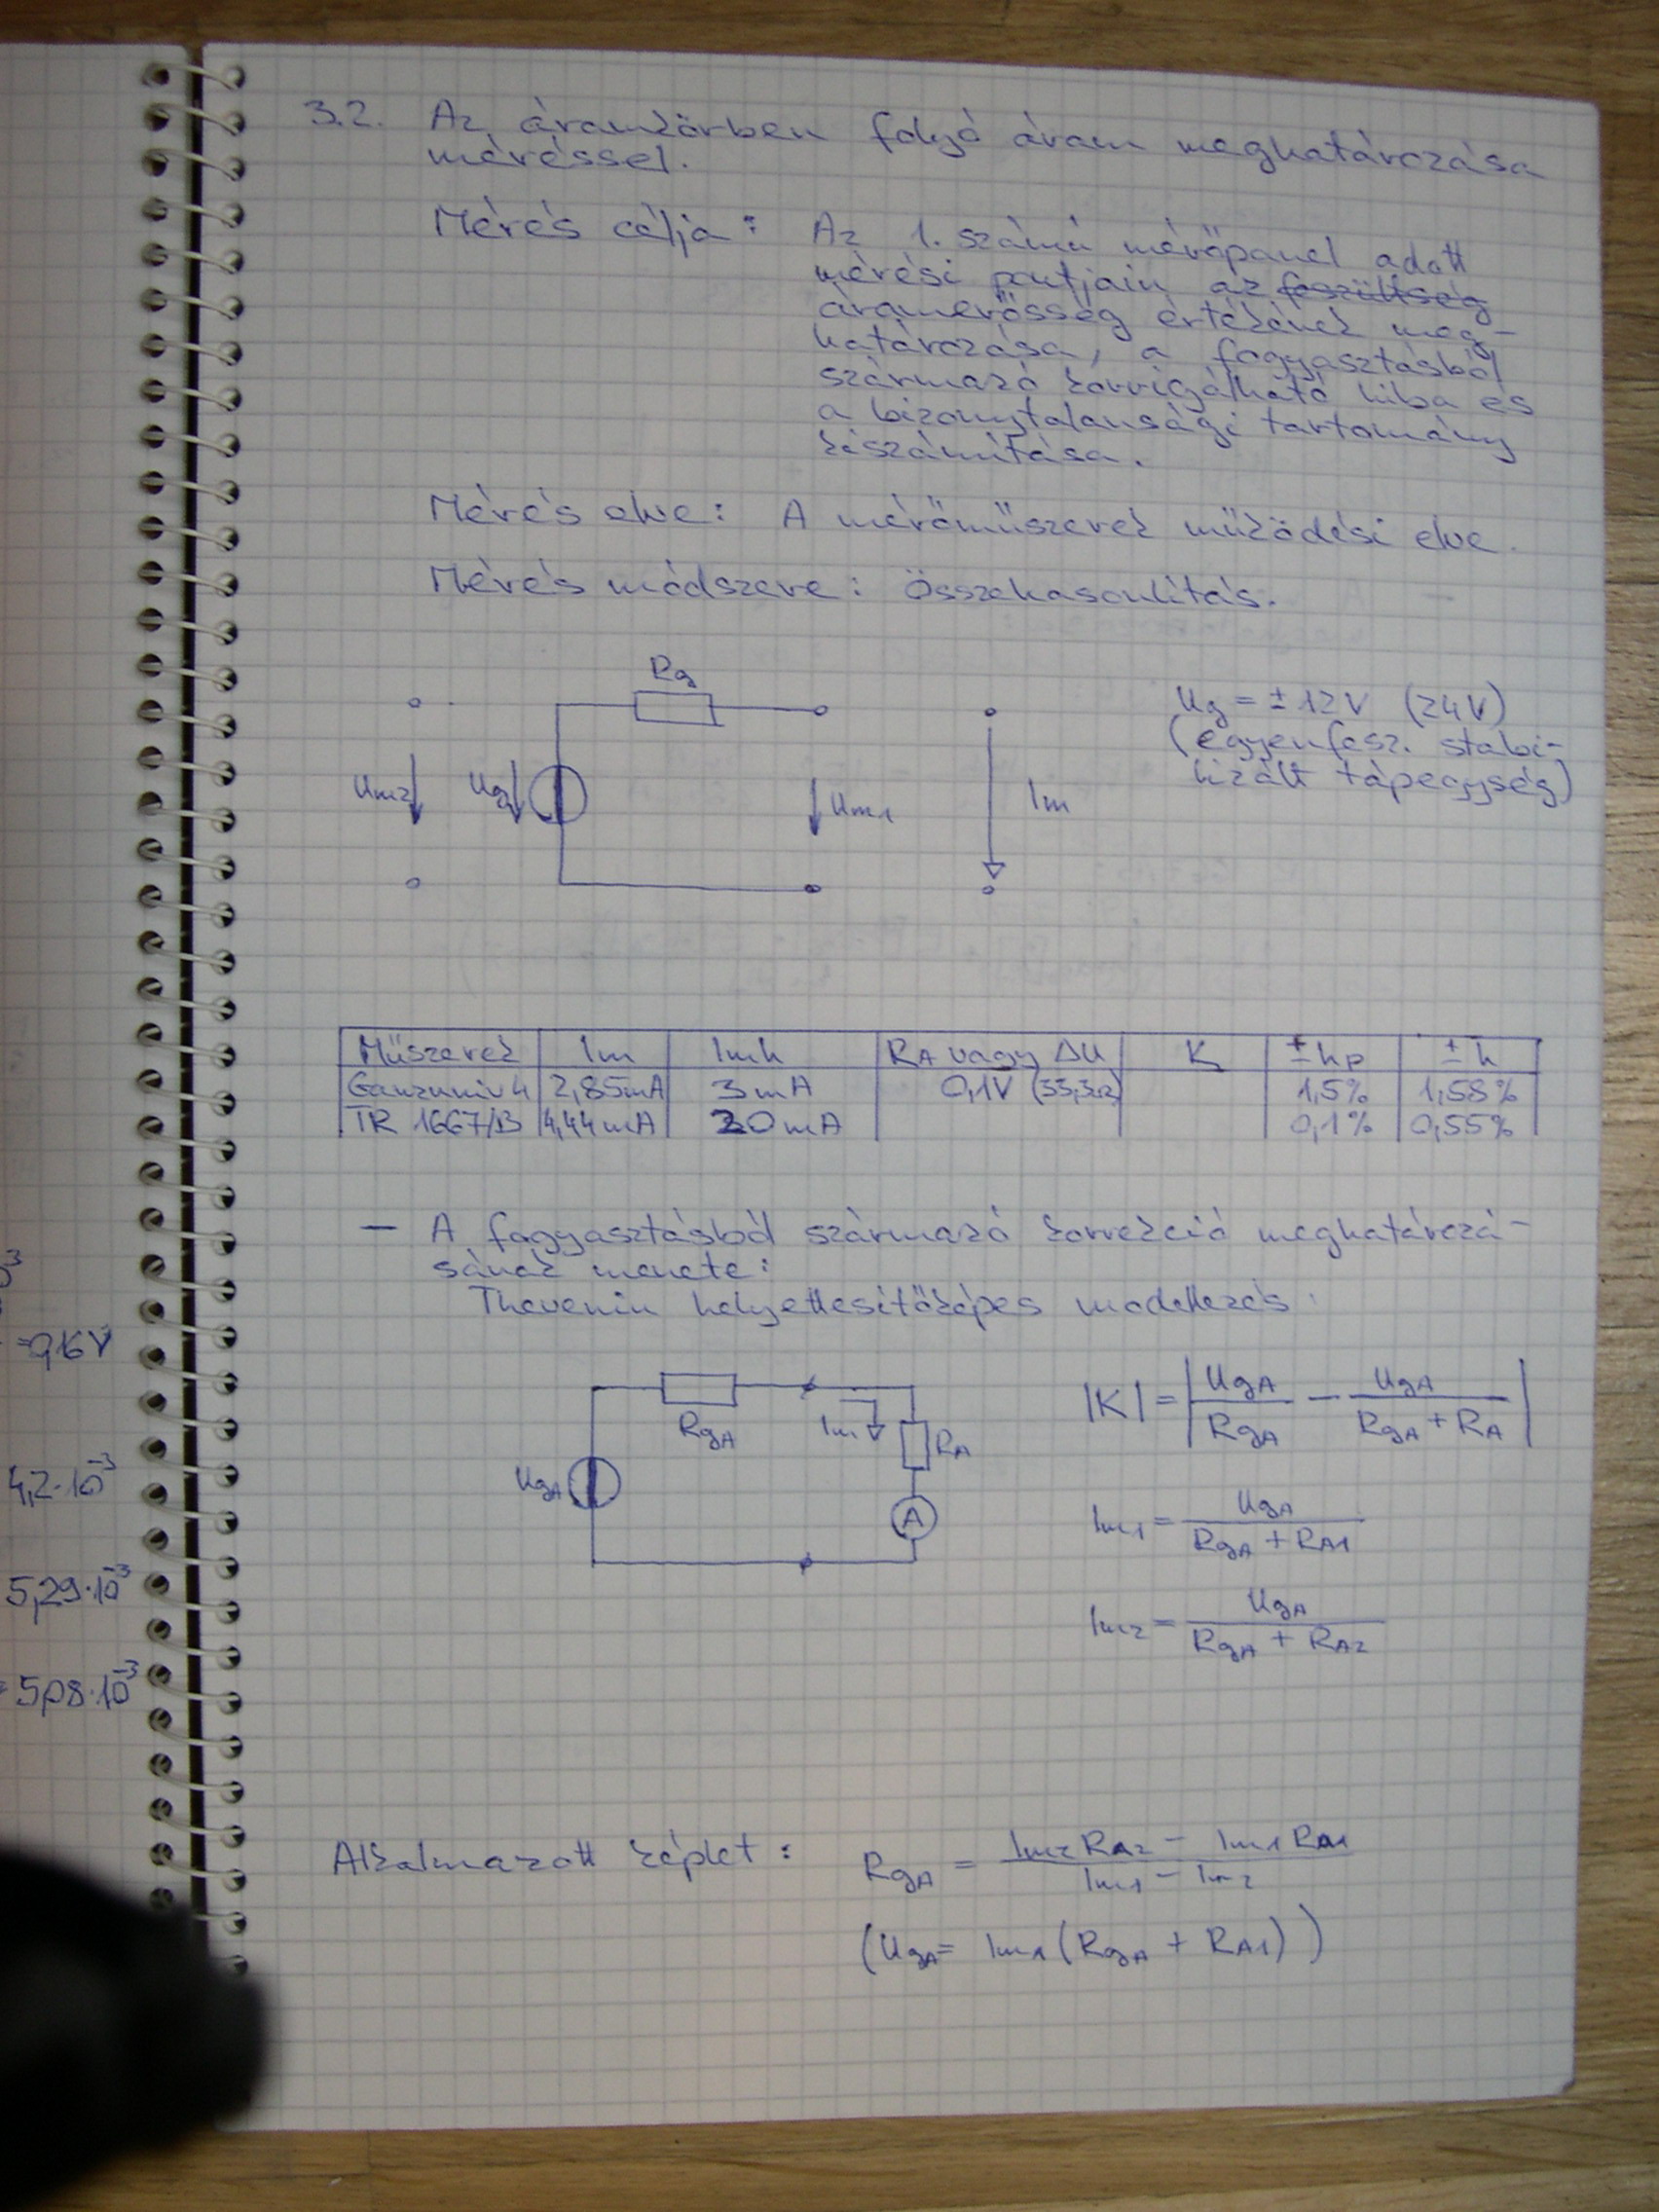 3.2. Az áramkörben folyó áram meghatározása
méréssel.
Mérés célja: Az 1. számú mérőpanel adott
mérési pontjain az feszültség
áramerősség értékének meg-
határozása, a fogyasztásból
származó korrigálható hiba és
a bizonytalansági tartomány
kiszámítása.
Mérés elve: A mérőműszerek működési elve.
Mérés módszere: Összehasonlítás.
Rg
Ug = ± 12V (24V)
(egyenfesz. stabi-
lizált tápegység)
Um2 Ug Um1 Im
Műszerek Im Imh RA vagy ΔU K ±hp ±h
Ganzuniv 4 2,85mA 3mA 0,1V (33,3Ω) 1,5% 1,58%
TR 1667/B 4,44mA 20mA 0,1% 0,55%
- A fogyasztásból származó korrekció meghatározá-
sának menete:
Thevenin helyettesítőképes modellezés.
|K| = | UgA / RgA - UgA / (RgA + RA) |
RgA Im RA
UgA A
Im1 = UgA / (RgA + RA1)
Im2 = UgA / (RgA + RA2)
Alkalmazott képlet: RgA = (Im2 RA2 - Im1 RA1) / (Im1 - Im2)
(UgA = Im1 (RgA + RA1))
3
=0,16V
4,2·10⁻³
5,29·10⁻³
5,08·10⁻³